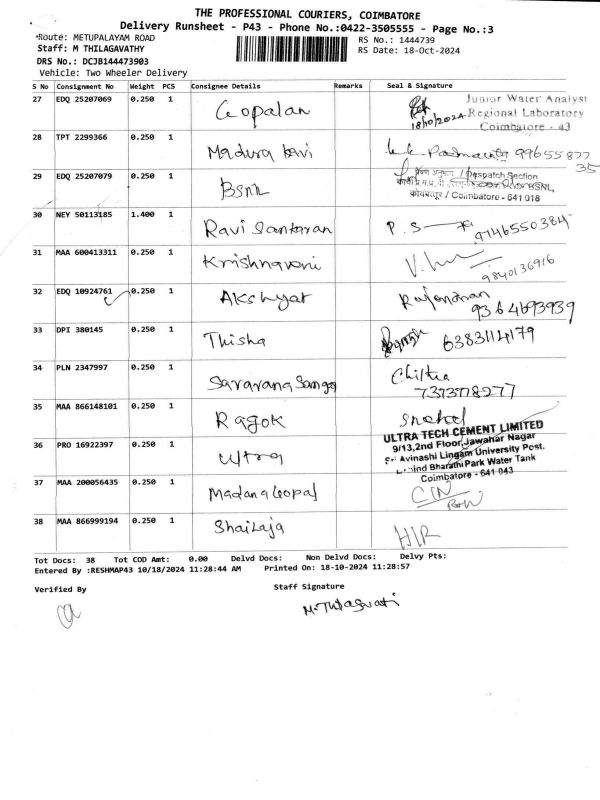 THE PROFESSIONAL COURIERS, COIMBATORE
Delivery Runsheet - P43 - Phone No.:0422-3505555 - Page No.:3
Route: METUPALAYAM ROAD
RS No.: 1444739
Staff: M THILAGAVATHY
RS Date: 18-Oct-2024
DRS No.: DCJB144473903
Vehicle: Two Wheeler Delivery
S No Consignment No Weight PCS Consignee Details Remarks Seal & Signature
27 EDQ 25207069 0.250 1 Gopalan 18/10/2024 Junior Water Analyst
Regional Laboratory
Coimbatore - 43
28 TPT 2299366 0.250 1 Madura 99655877
35
29 EDQ 25207079 0.250 1 BSNL / Despatch Section
BSNL,
कोयंबत्तूर / Coimbatore - 641 018
30 NEY 50113185 1.400 1 Ravi Sankaran P. S 9746550384
31 MAA 600413311 0.250 1 Krishnaveni 9840136916
32 EDQ 10924761 0.250 1 Akshyat Rajendran
9364693939
33 DPI 380145 0.250 1 Thisha 6383114179
34 PLN 2347997 0.250 1 Saravana Chitra
7373718277
35 MAA 866148101 0.250 1 Ragok
36 PRO 16922397 0.250 1 Ultra ULTRA TECH CEMENT LIMITED
9/13,2nd Floor, Jawahar Nagar
Avinashi Lingam University Post.
Bharathi Park Water Tank
Coimbatore - 641 043
37 MAA 200056435 0.250 1 Madana Gopal
38 MAA 866999194 0.250 1 Shailaja HIR
Tot Docs: 38 Tot COD Amt: 0.00 Delvd Docs: Non Delvd Docs: Delvy Pts:
Entered By :RESHMAP43 10/18/2024 11:28:44 AM Printed On: 18-10-2024 11:28:57
Verified By Staff Signature
M. Thilagvati